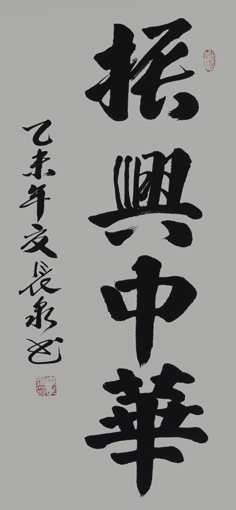 振興中華
乙未年文長泉书